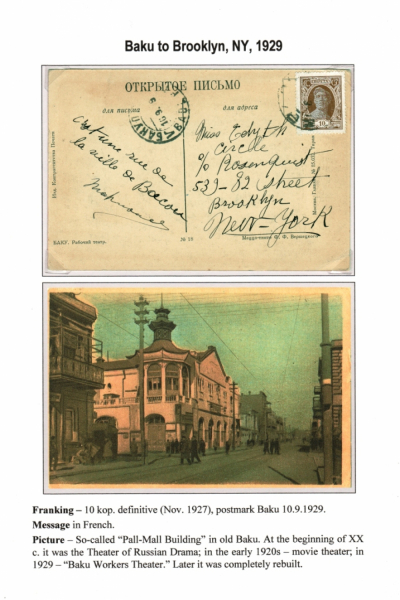 Baku to Brooklyn, NY, 1929
ОТКРЫТОЕ ПИСЬМО
для письма
для адреса
C'est une rue de
la ville de Bacou
Miss Edyth
Circle
c/o Rosenquist
539-82 Street
Brooklyn
New-York
БАКУ. Рабочий театр.
№ 18
Franking – 10 kop. definitive (Nov. 1927), postmark Baku 10.9.1929.
Message in French.
Picture – So-called “Pall-Mall Building” in old Baku. At the beginning of XX
c. it was the Theater of Russian Drama; in the early 1920s – movie theater; in
1929 – “Baku Workers Theater.” Later it was completely rebuilt.